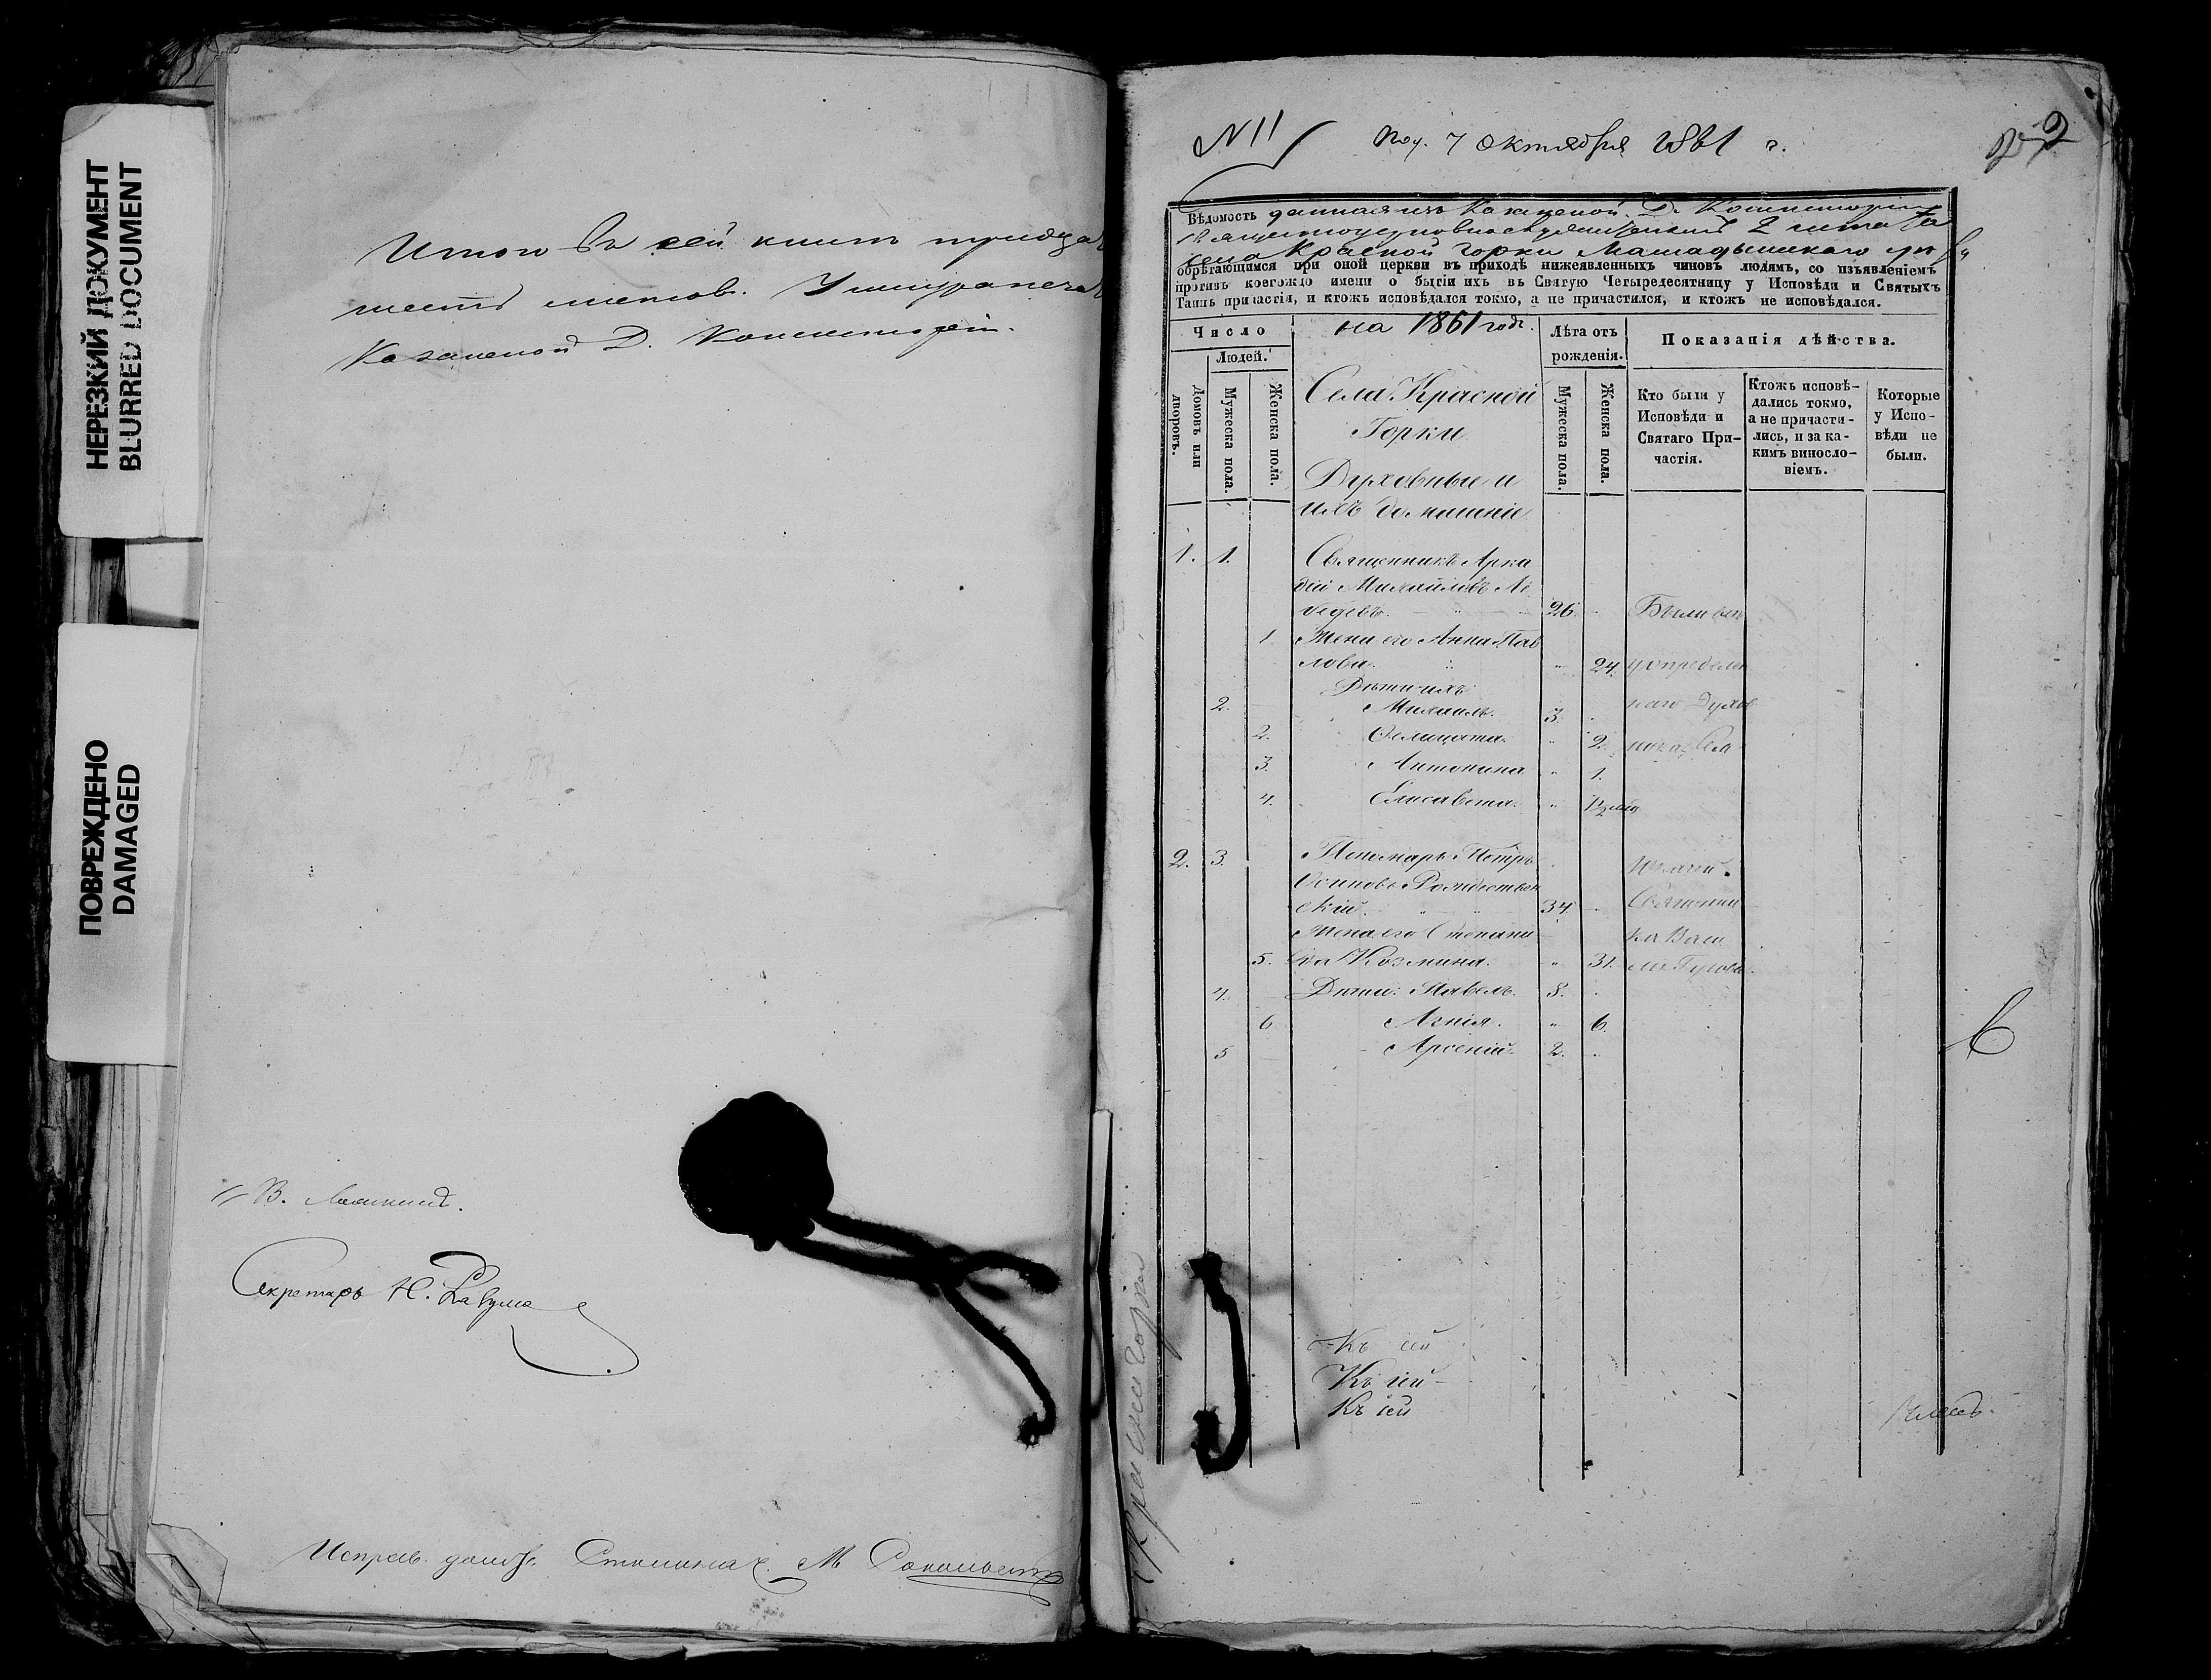 НЕРЕЗКИЙ ДОКУМЕНТ
BLURRED DOCUMENT
ПОВРЕЖДЕНО
DAMAGED
Итого въ сей книгѣ тридца
шесть листов.
Казанской Д. Консисторіи.
В.
Секретарь Н.
Исправ. долж. Столонач. М
N 11
Пол. 7 октября 1861 г.
2
Вѣдомость данная изъ Казанской Д. Консисторіи
села Красной Горки Мамадышскаго
обрѣтающимся при оной церкви въ приходѣ нижеявленныхъ чиновъ людямъ, со изъявленіемъ
противъ коегождо имени о бытіи ихъ въ Святую Четыредесятницу у Исповѣди и Святыхъ
Таинъ причастія, и ктожъ исповѣдался токмо, а не причастился, и ктожъ не исповѣдался.
Число
на 1861 годъ.
Лѣта отъ
рожденія.
Показанія дѣйства.
Людей.
Домовъ или
дворовъ.
Мужеска пола.
Женска пола.
Села Красной
Горки
Духовные и
ихъ домашніе
Мужеска пола.
Женска пола.
Кто были у
Исповѣди и
Святаго При-
частія.
Ктожъ исповѣ-
дались токмо,
а не причасти-
лись, и за ка-
кимъ винosло-
віемъ.
Которые
у Испо-
вѣди не
были.
1. 1. Священникъ Арка
дій Михайловъ Ле
бедевъ. 26. Были
1 Жена его Анна Пав
лова. 24. у опредѣлен
Дѣти ихъ
2. Михаилъ. 3. наго Духов
2. Фелицата. 2. ника
3. Антонина 1.
4. Елисавета. 1/2
2. 3. Пономарь Петръ
Осиповъ Рождествен
скій. 34. Священни
Жена его Степани
ка Васи
5. да Козмина. 31. лія
4. Дѣти: Павелъ. 8.
6 Агнія. 6.
5 Арсеній. 2.
6
Къ сей
Къ сей
Къ сей
Красной Горки